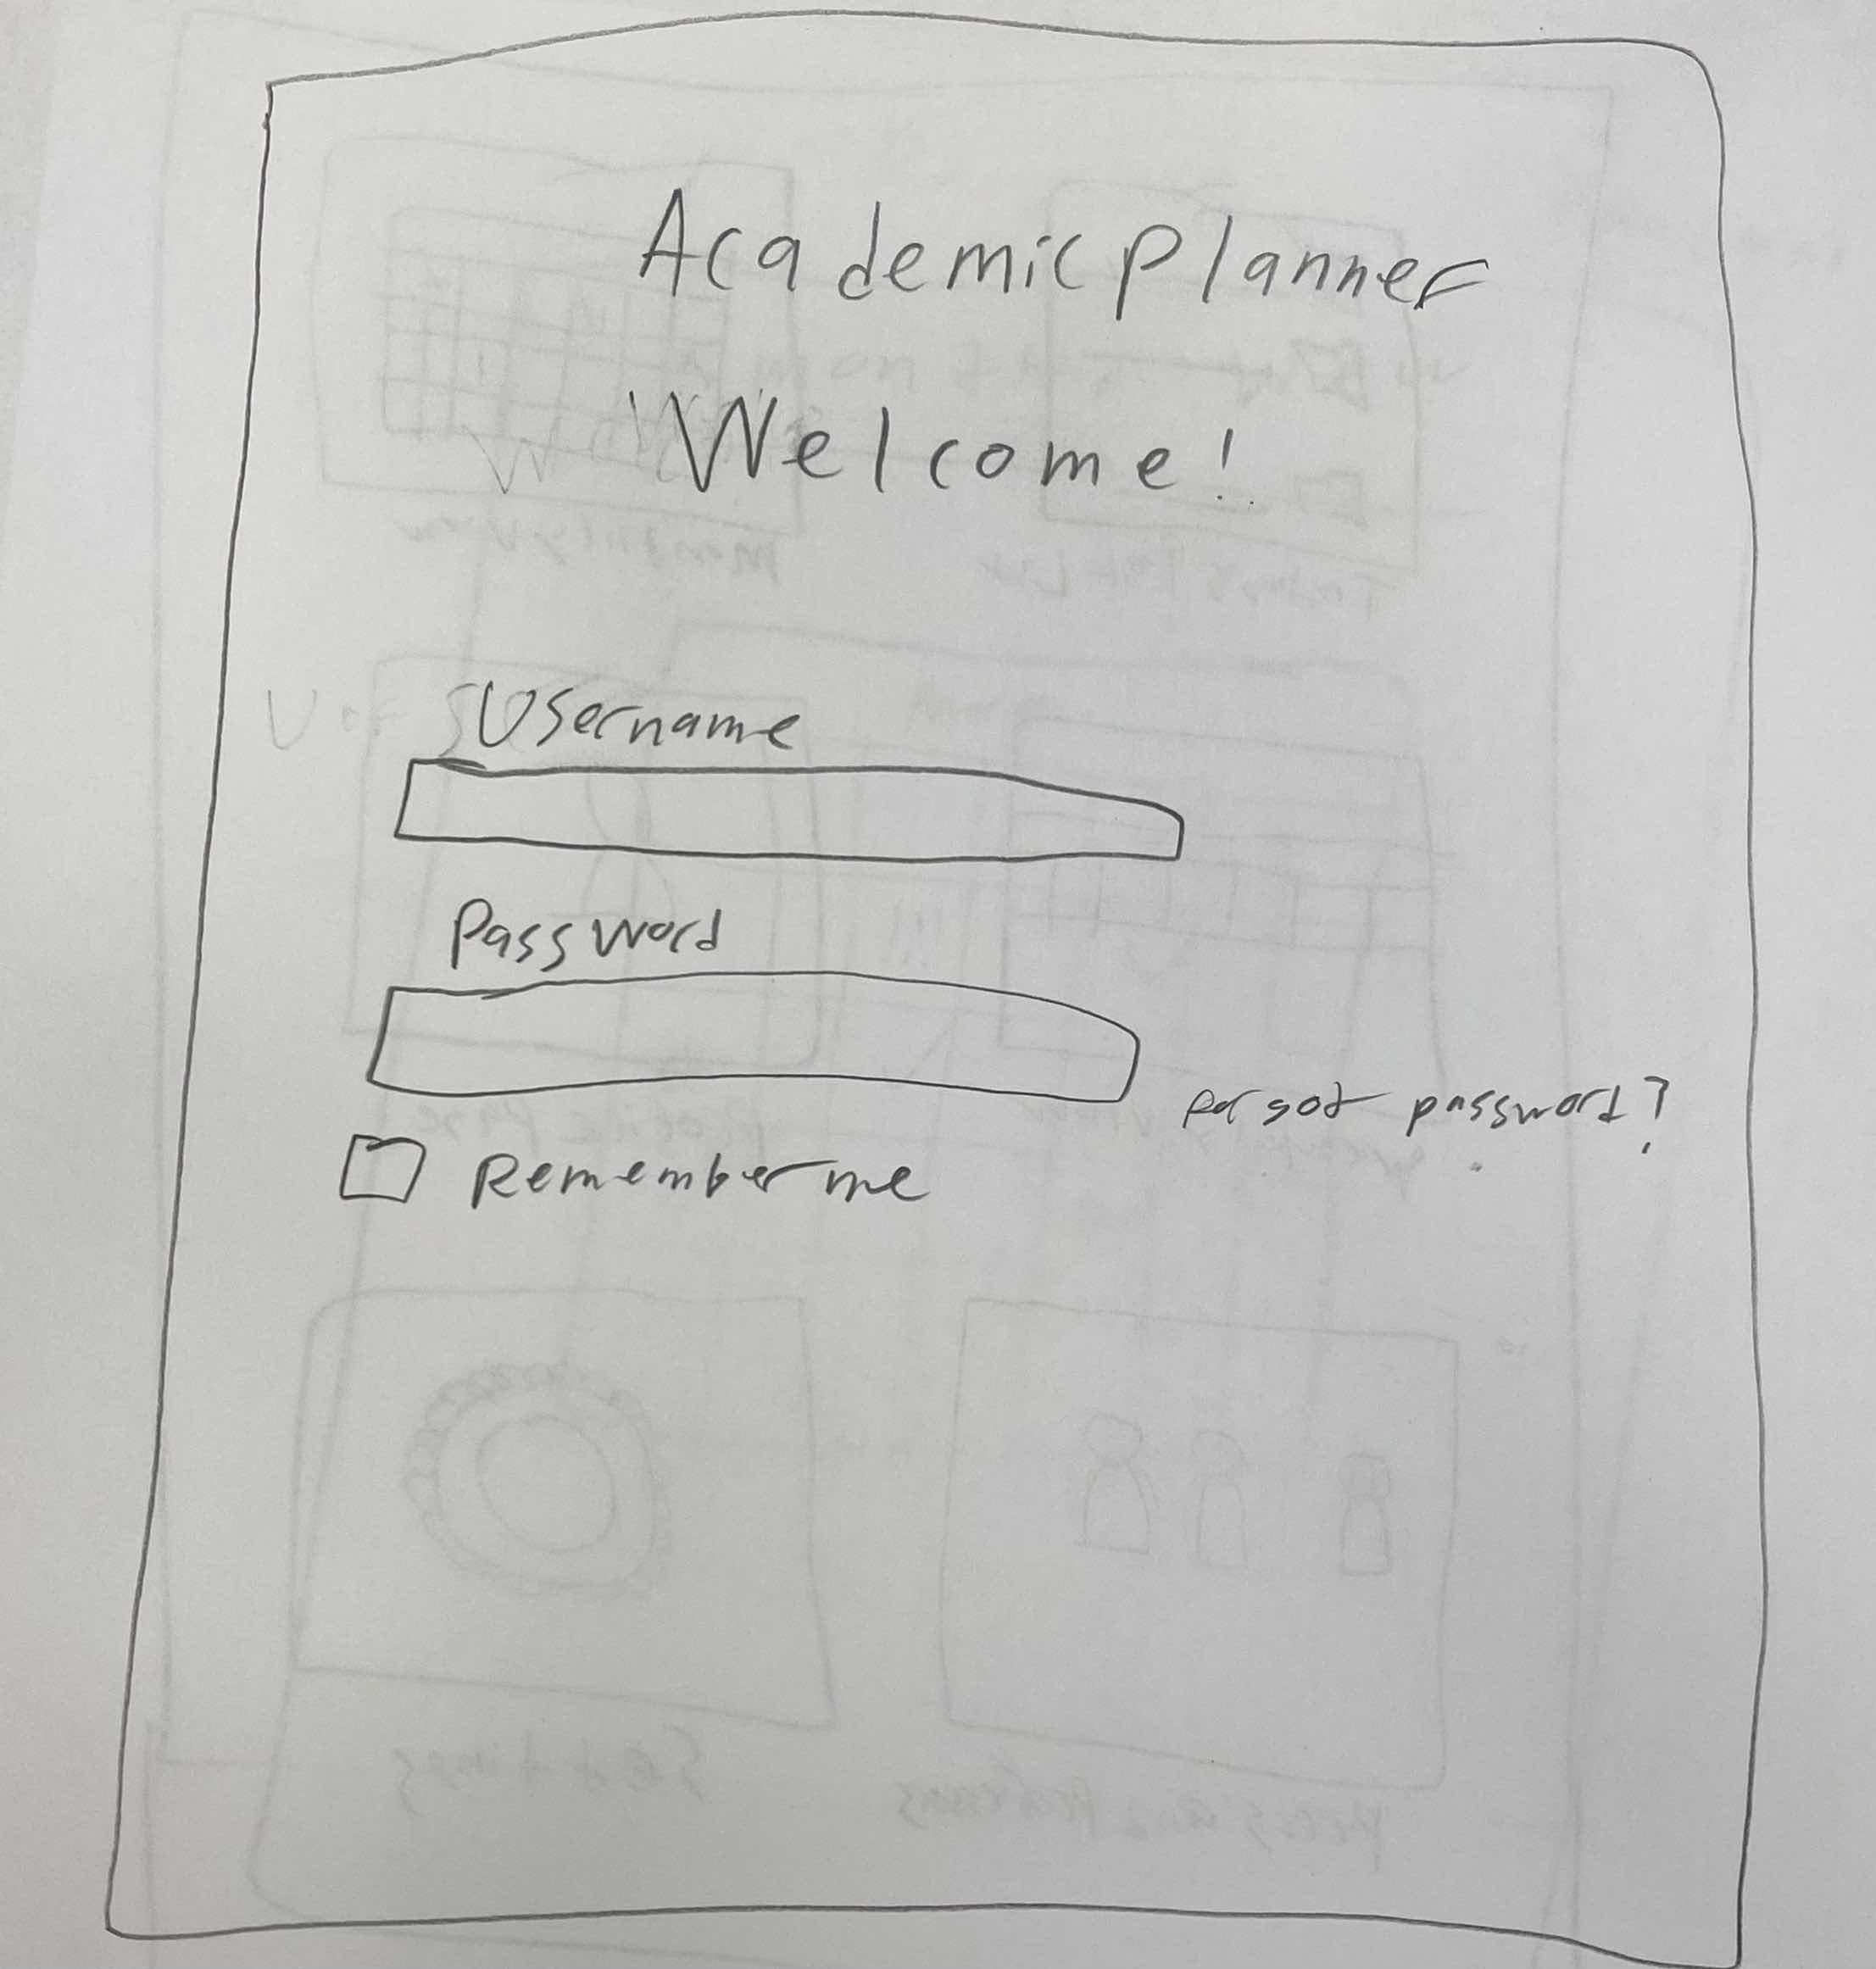 Academic planner
Welcome!
Username
Password
Forgot password?
Remember me